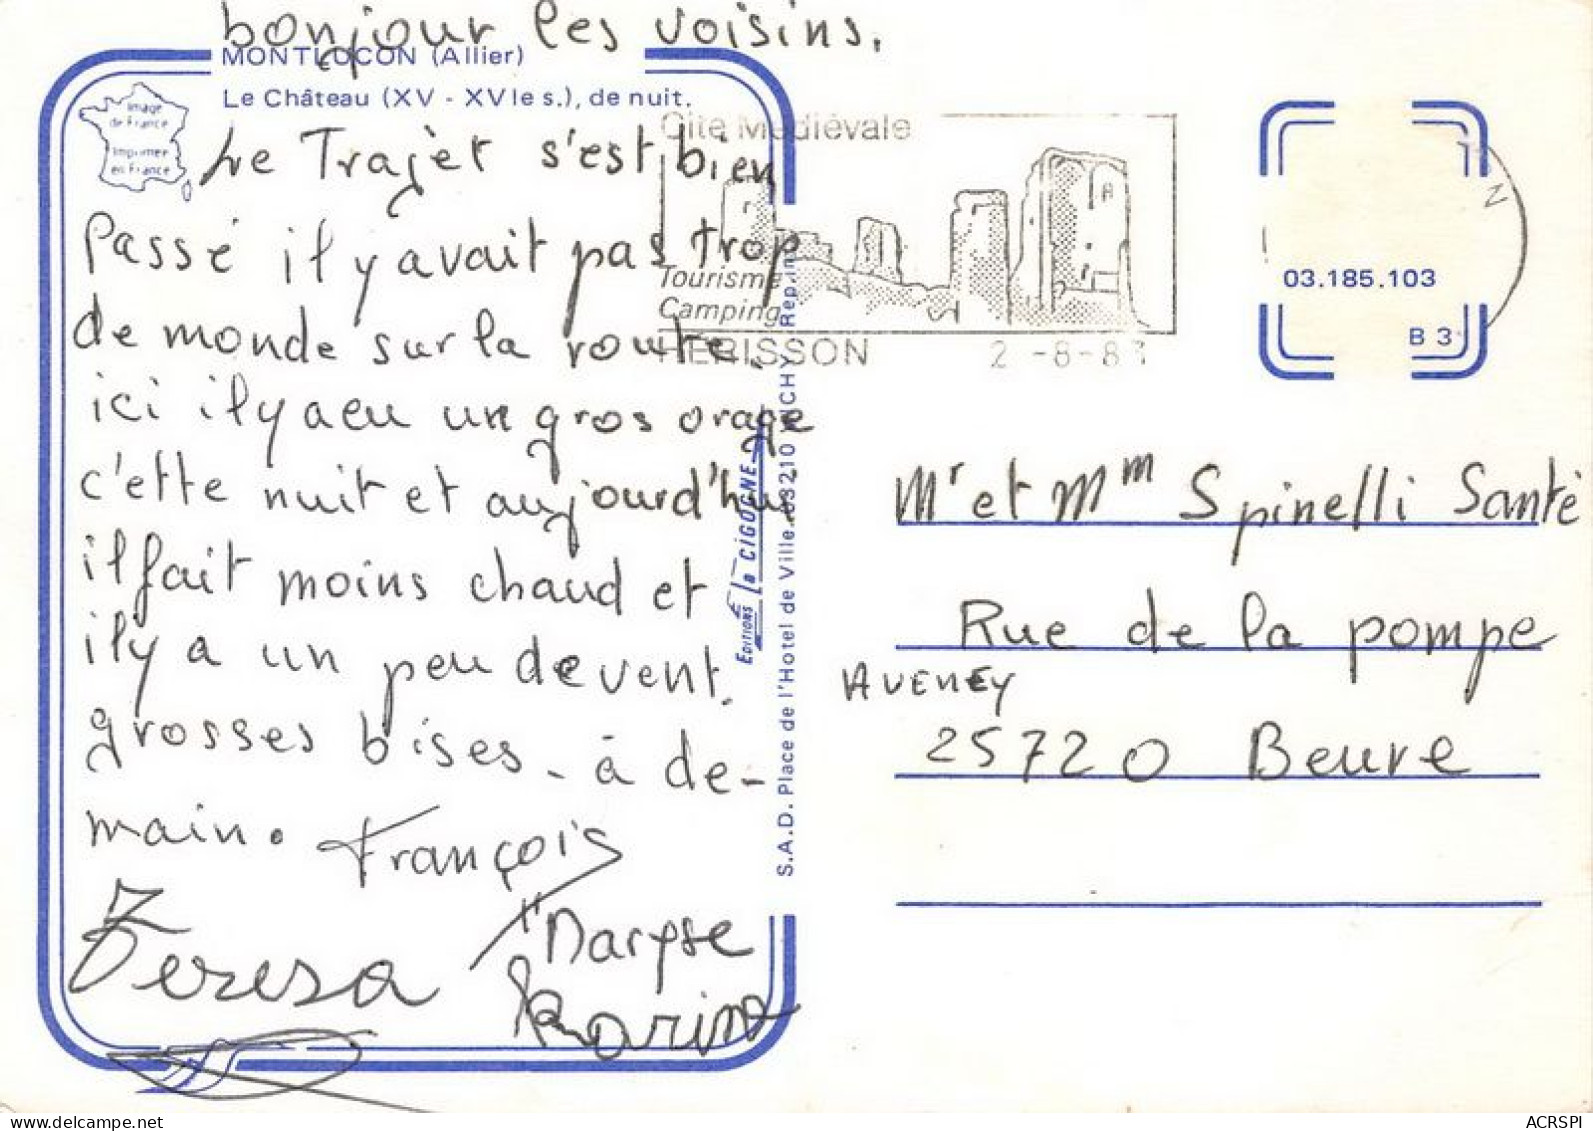 bonjour les voisins.
MONTLUCON (Allier)
Le Château (XV - XVIe s.), de nuit.
Image
de France
Imprimer
en France
Le Trajet s'est bien
Passé il y avait pas trop
de monde sur la route.
ici il y a eu un gros orage
c'ette nuit et aujourd'hui
il fait moins chaud et
il y a un peu de vent.
grosses bises - à de-
main. François
Teresa
Maryse
Karine
EDITIONS La CIGOGNE
S.A.D. Place de l'Hotel de Ville. 03210 VICHY Rep. in
Cité Médiévale
Tourisme
Camping
HERISSON 2-8-83
03.185.103
B 3
Mr et Mm Spinelli Santé
Rue de la pompe
AVENEY
25720 Beure
ACRSPI